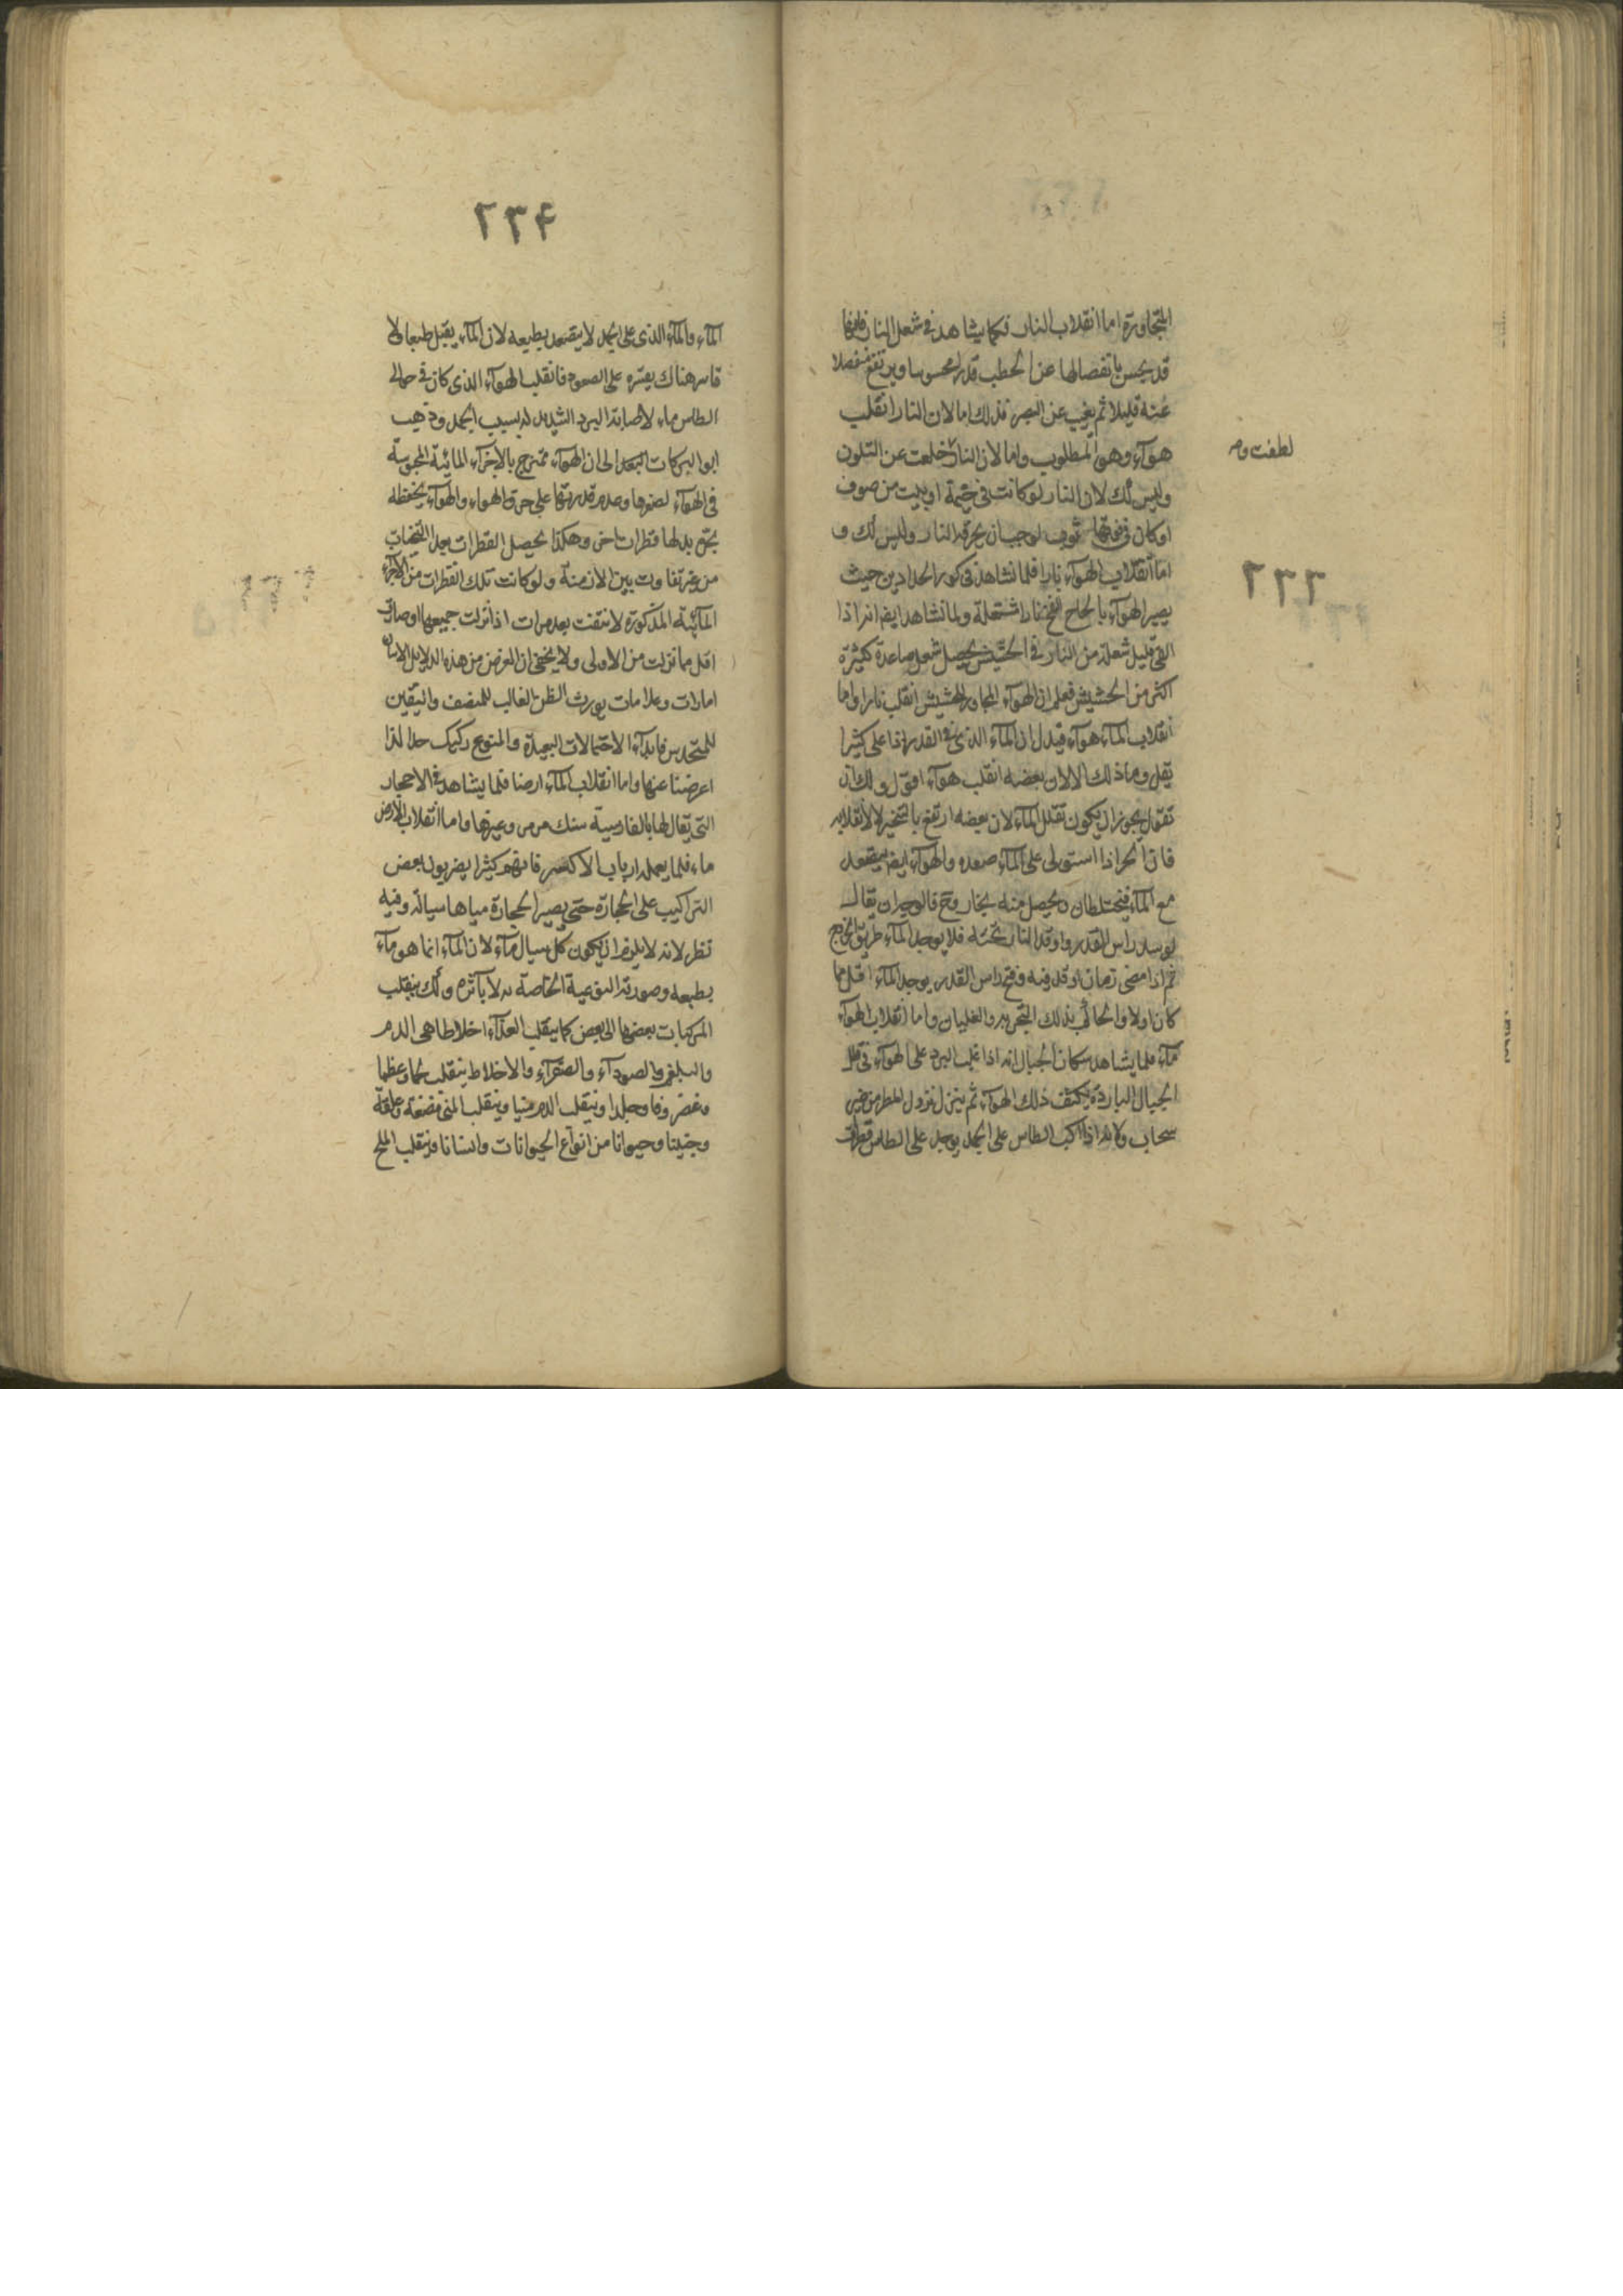 المتجاورة اما انقلاب النار فكما يشاهد في شعل النار فانها
قد يحس بانفصالها عن الحطب قدرا محسوسا ويرتفع منفصلا
عنه قليلا ثم يغيب عن البصر فذلك اما لان النار انقلب
هوآء وهو المطلوب واما لان النار خلعت عن التلون
وليس لك لان النار لو كانت في خيمة او بيت من صوف
او كان في فوقها ثوب لوجب ان يحرقه النار وليس لك و
اما انقلاب الهوآء نارا فلما نشاهد في كور الحدادين حيث
يصير الهوآء بالحاح النفخ نارا مشتعلة ولما نشاهد ايضا انه اذا
القي قليل شعلة من النار في الحشيش يحصل شعل صاعدة كثيرة
اكثر من الحشيش فعلم ان الهوآء المجاور للحشيش انقلب نارا واما
انقلاب المآء هوآء فيدل ان المآء الذي في القدر اذا غلى كثيرا
يقل وما ذلك الا لان بعضه انقلب هوآء اقول ولك ان
تقول يجوز ان يكون تقلل المآء لان بعضه ارتفع بالتبخير لا لانقلابه
فان الحر اذا استولى على المآء صعده والهوآء ايضا يتصعد
مع المآء فيختلطان ويحصل منه بخار وح فالوجه ان يقال
لو سد راس القدر واوقد النار تحته فلا يوجد المآء طريق الخروج
ثم اذا مضى زمان اوقد فيه وفتح راس القدر يوجد المآء اقل مما
كان اولا والحاكم بذلك التجربة والغليان واما انقلاب الهوآء
مآء فلما يشاهد سكان الجبال انه اذا غلب البرد على الهوآء في قلل
الجبال الباردة يكثف ذلك الهوآء ثم ينزل نزول المطر من غير
سحاب ولانه اذا اكب الطاس على الجمد يوجد على الطاس قطرات
لطفت وم
٢٣٣
٢٣۴
المآء والمآء الذي على الجمد لا يتصعد بطبعه لان المآء يقبل طبعا ولا
قاسر هناك يقسره على الصعود فانقلب الهوآء الذي كان في حوالي
الطاس ماء لاصابة البرد الشديد له بسبب الجمد وذهب
ابو البركات البغدادي الى ان الهوآء ممتزج بالاجزآء المائية المحبوسة
في الهوآء لصغرها وعدم قدرتها على خرق الهواء والهوآء يحفظه
يجتمع بدلها قطرات اخر وهكذا يحصل القطرات بعد التنحيات
من غير تفاوت بين الازمنة ولو كانت تلك القطرات من الاجزآء
المآئية المذكورة لانتفت بعد مرات اذا نزلت جميعها او صارت
اقل مما نزلت من الاولى ولا يخفى ان الغرض من هذه الدلايل الاتيان
امارات وعلامات يورث الظن الغالب للمنصف واليقين
للمتحدس فابدآء الاحتمالات البعيدة والمنوع ركيك جدا لذا
اعرضنا عنها واما انقلاب المآء ارضا فلما يشاهد في الاحجار
التي يقال لها بالفارسية سنك مرمر وغيرها واما انقلاب الارض
ماء فلما يعمله ارباب الاكسير فانهم كثيرا يضربون بعض
التراكيب على الحجارة حتى يصير الحجارة مياها سيالة وفيه
نظر لانه لا يلزم ان يكون كل سيال مآء لان المآء انما هو مآء
بطبعه وصورته النوعية الخاصة به لا بآثره ولك ينقلب
المركبات بعضها الى بعض كما ينقلب الغذآء اخلاطا هى الدم
والبلغم والسودآء والصفرآء والاخلاط ينقلب لحما وعظما
وغضروفا وجلدا وينقلب الدم منيا وينقلب المني مضغة وعلقة
وجنينا وحيوانا من انواع الحيوانات وانسانا وينقلب الملح